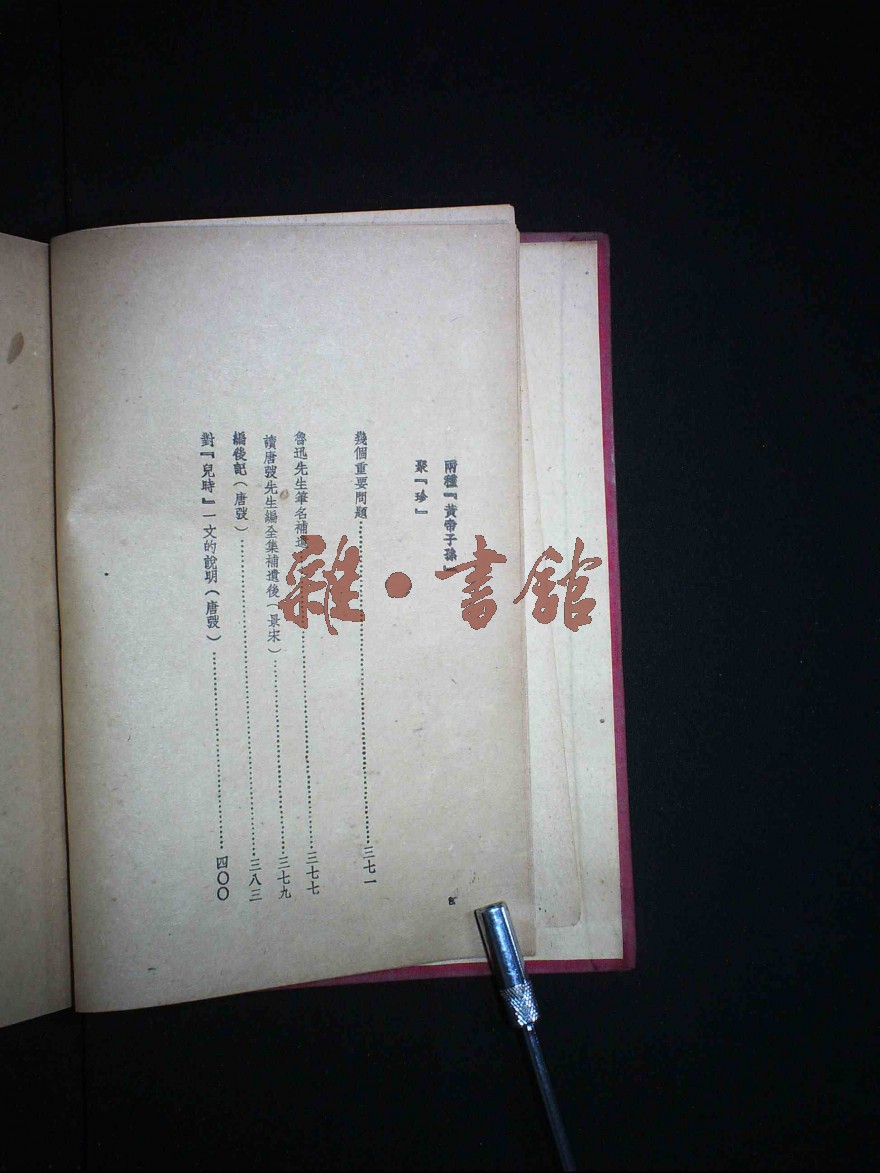 兩種『黃帝子孫』
聚『珍』
幾個重要問題……三七一
魯迅先生筆名補遺……三七七
讀唐弢先生編全集補遺後（景宋）……三七九
編後記（唐弢）……三八三
對『兒時』一文的說明（唐弢）……四〇〇
雜·書館